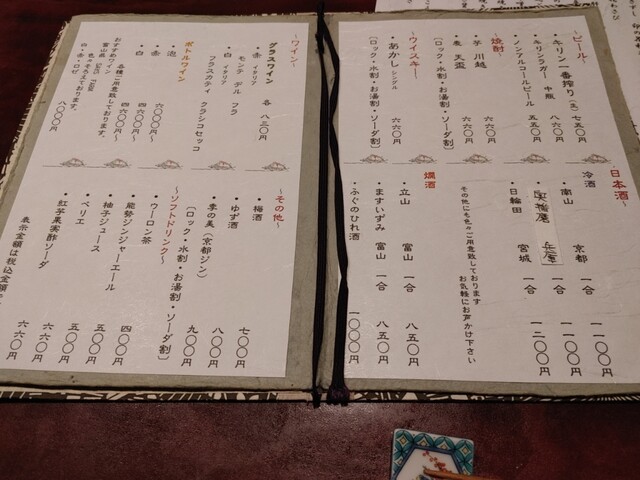 ~ビール~
・キリン一番搾り(生) 七五〇円
・キリンラガー 中瓶 八六〇円
・ノンアルコールビール 五五〇円
~焼酎~
・芋 川越 六六〇円
・麦 天盃 六六〇円
(ロック・水割・お湯割・ソーダ割)
~ウイスキー~
・あかし シングル 六六〇円
(ロック・水割・お湯割・ソーダ割)
日本酒~
冷酒
・南山 京都 一合 一一〇〇円
兵庫 一合 一一〇〇円
・日輪田 宮城 一合 一二〇〇円
その他にも色々ご用意致しております
お気軽にお声かけ下さい
燗酒
・立山 富山 一合 八五〇円
・ますいずみ 富山 一合 八五〇円
・ふぐのひれ酒 一〇〇〇円
~ワイン~
グラスワイン 各 八三〇円
・赤 イタリア
モンテ デル フラ
・白 イタリア
フラスカティ クラシコセッコ
ボトルワイン
・泡 六〇〇〇円~
・赤 四六〇〇円~
・白 四六〇〇円~
各種ご用意致しております。
おすすめワイン
富山県 SAYS FARM
色々そろえております。
白・赤・ロゼ 八〇〇〇円
~その他~
・梅酒 七〇〇円
・ゆず酒 八〇〇円
・季の美(京都ジン) 九〇〇円
(ロック・水割・お湯割・ソーダ割)
~ソフトドリンク~
・ウーロン茶 四〇〇円
・能勢ジンジャーエール 五〇〇円
・柚子ジュース 五〇〇円
・ペリエ 六六〇円
・紅芋果実酢ソーダ 六六〇円
表示金額は税込金額で